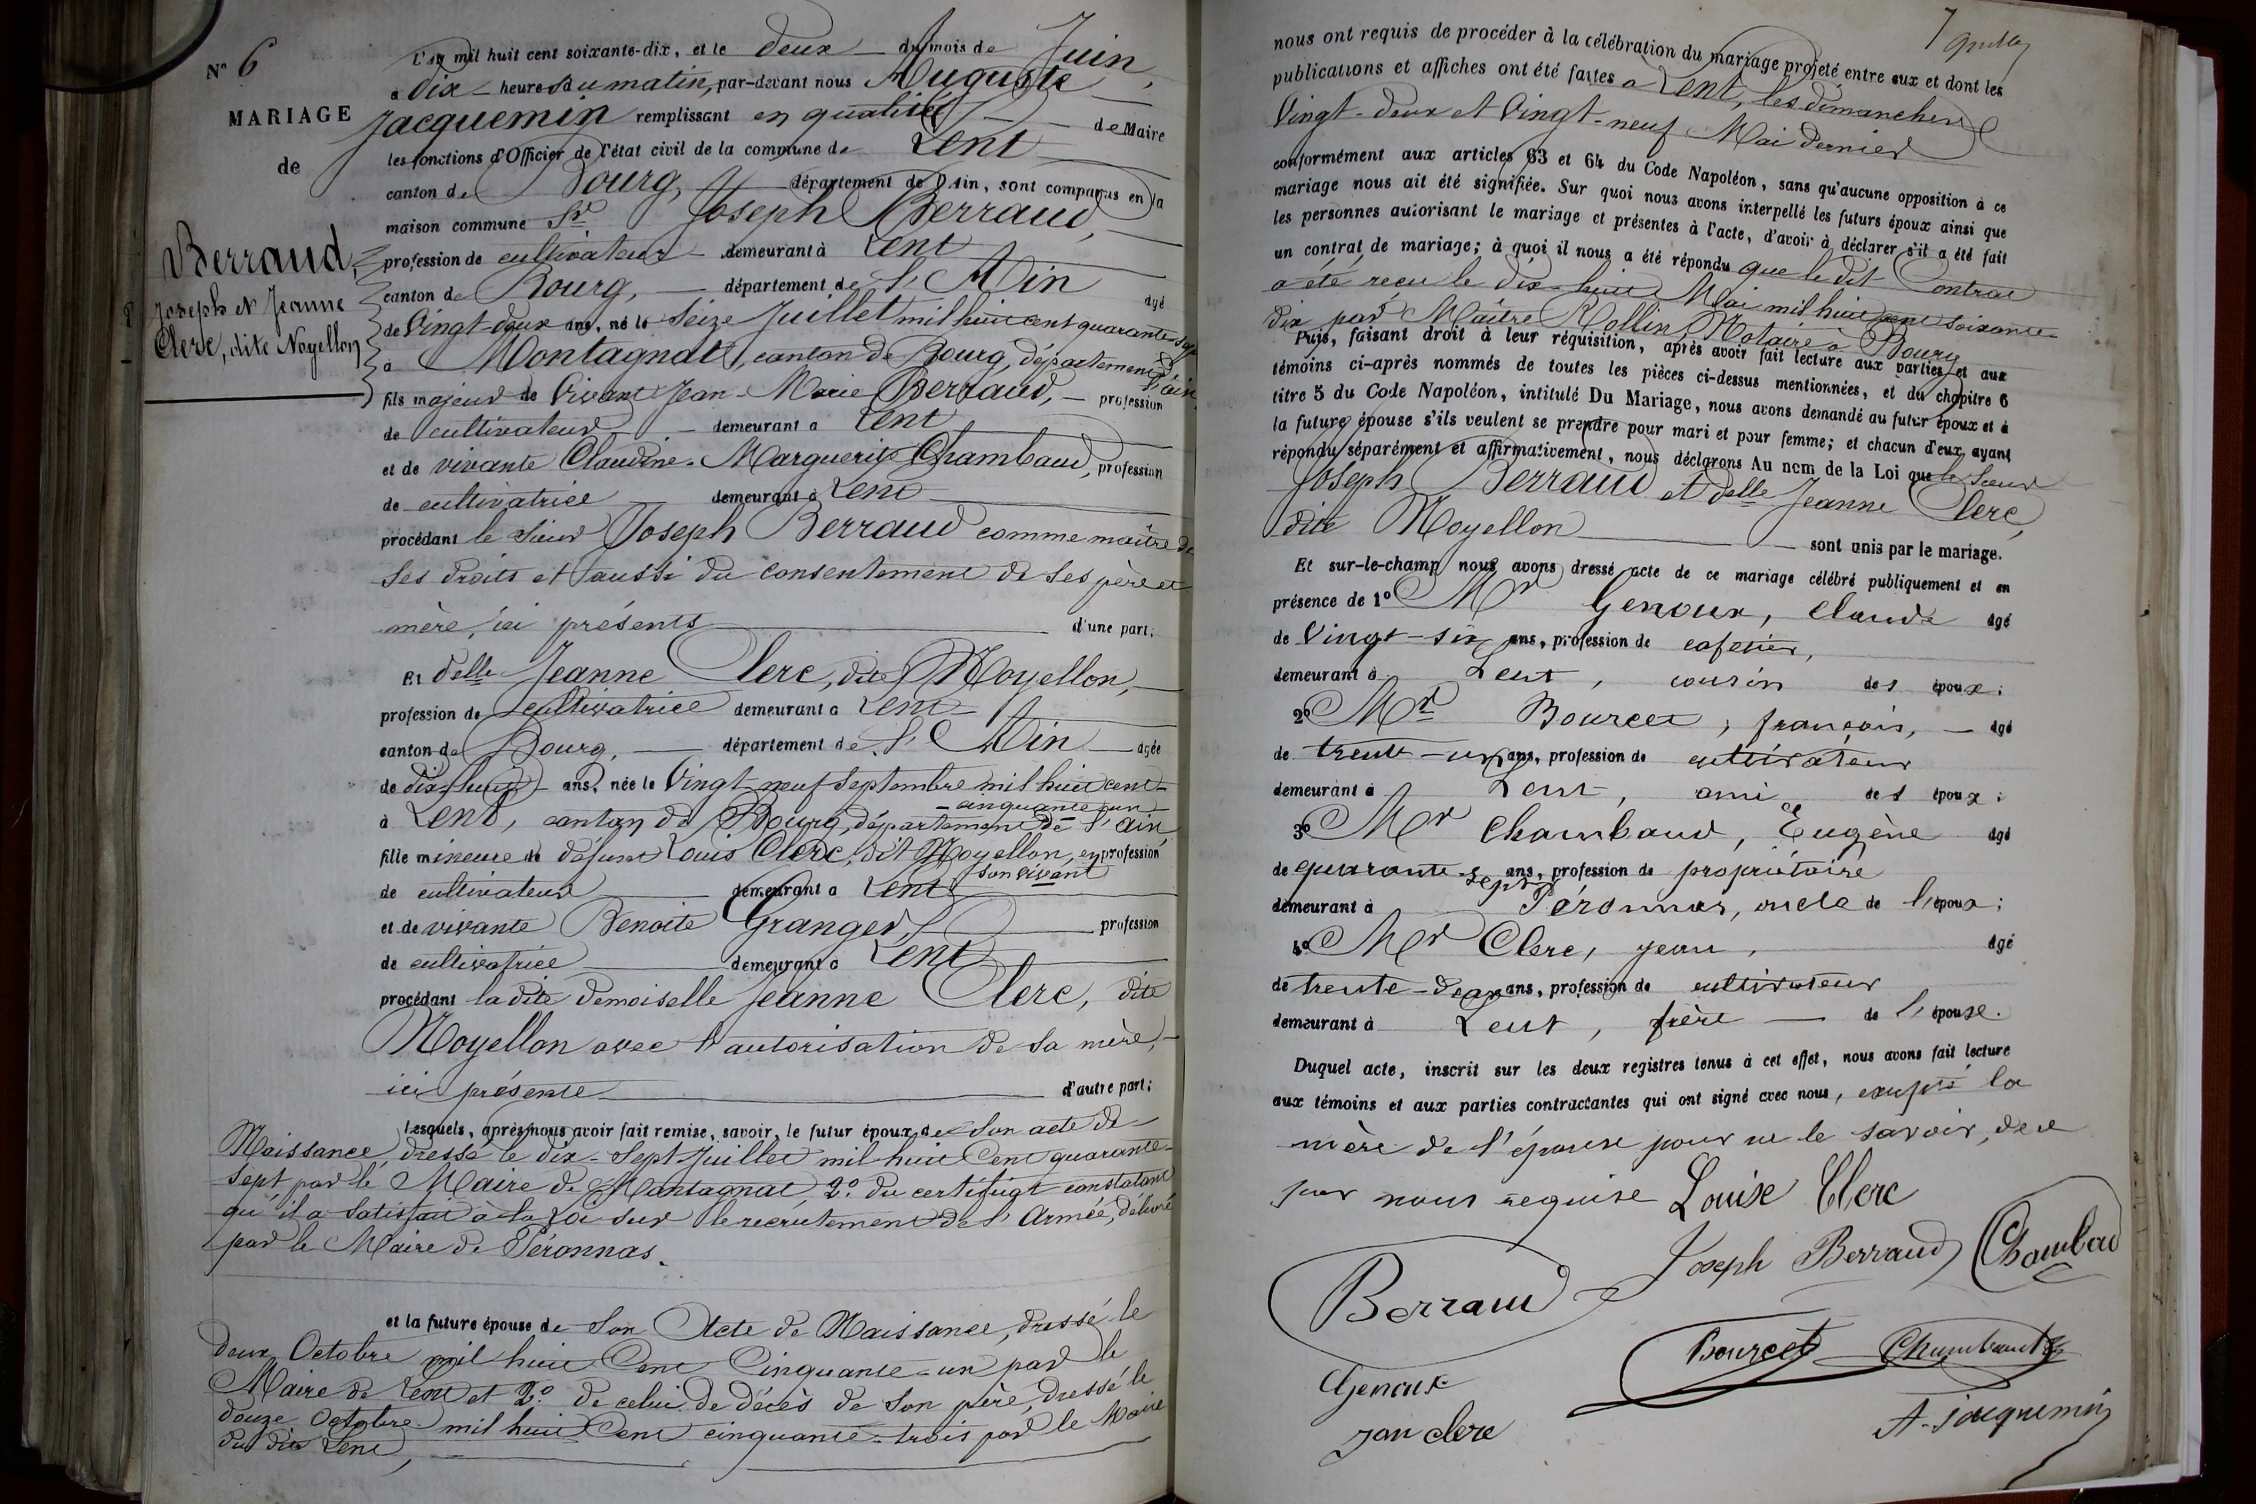 N° 6
MARIAGE
de
Berraud,
Joseph et Jeanne
Clerc, dite Noyellon
L'an mil huit cent soixante-dix, et le deux du mois de Juin,
à dix heures du matin, par-devant nous Auguste
Jacquemin remplissant en qualité de Maire
les fonctions d'Officier de l'état civil de la commune de Lent
canton de Bourg, département de l'Ain, sont comparus en la
maison commune Sr Joseph Berraud,
profession de cultivateur demeurant à Lent
canton de Bourg, département de l'Ain âgé
de Vingt-deux ans, né le seize Juillet mil huit cent quarante-sept
à Montagnat, canton de Bourg, département de l'ain,
fils majeur de vivant Jean-Marie Berraud, profession
de cultivateur demeurant à Lent
et de vivante Claudine-Marguerite Chambaud, profession
de cultivatrice demeurant à Lent
procédant le sieur Joseph Berraud comme maître de
ses droits et aussi du consentement de ses père et
mère, ici présents d'une part;
Et delle Jeanne Clerc, dite Noyellon,
profession de cultivatrice demeurant à Lent
canton de Bourg, département de l'Ain âgée
de dix-huit ans, née le Vingt-neuf Septembre mil huit cent
- cinquante-un -
à Lent, canton de Bourg, département de l'ain,
fille mineure de défunt Louis Clerc, dit Noyellon, en profession
son vivant
de cultivateur demeurant à Lent
et de vivante Benoite Granger, profession
de cultivatrice demeurant à Lent
procédant la dite demoiselle Jeanne Clerc, dite
Noyellon avec l'autorisation de sa mère,
ici présente d'autre part;
Lesquels, après nous avoir fait remise, savoir, le futur époux de son acte de
Naissance, dressé le dix-sept Juillet mil huit Cent quarante-
sept par le Maire de Montagnat, 2° du certificat constatant
qu'il a satisfait à la Loi sur le recrutement de l'Armée, délivré
par le Maire de Péronnas.
et la future épouse de son Acte de Naissance, dressé le
deux Octobre mil huit Cent Cinquante-un par le
Maire de Lent et 2° de celui de décès de son père, dressé le
douze Octobre mil huit Cent cinquante-trois par le Maire
du dit Lent,
7
nous ont requis de procéder à la célébration du mariage projeté entre eux et dont les
publications et affiches ont été faites à Lent, les dimanches
Vingt-deux et Vingt-neuf Mai dernier
conformément aux articles 63 et 64 du Code Napoléon, sans qu'aucune opposition à ce
mariage nous ait été signifiée. Sur quoi nous avons interpellé les futurs époux ainsi que
les personnes autorisant le mariage et présentes à l'acte, d'avoir à déclarer s'il a été fait
un contrat de mariage; à quoi il nous a été répondu que le dit Contrat
a été reçu le dix-huit Mai mil huit cent soixante-
dix par Maître Rollin, Notaire à Bourg
Puis, faisant droit à leur réquisition, après avoir fait lecture aux parties et aux
témoins ci-après nommés de toutes les pièces ci-dessus mentionnées, et du chapitre 6
titre 5 du Code Napoléon, intitulé Du Mariage, nous avons demandé au futur époux et à
la future épouse s'ils veulent se prendre pour mari et pour femme; et chacun d'eux ayant
répondu séparément et affirmativement, nous déclarons Au nom de la Loi que le Sieur
Joseph Berraud et delle Jeanne Clerc,
dite Noyellon sont unis par le mariage.
Et sur-le-champ nous avons dressé acte de ce mariage célébré publiquement et en
présence de 1° Mr Genoux, Claude âgé
de Vingt-six ans, profession de cafetier,
demeurant à Lent, cousin des époux;
2° Mr Bourcet, françois, âgé
de trente-un ans, profession de cultivateur
demeurant à Lent, ami des époux;
3° Mr Chambaud, Eugène âgé
de quarante-sept ans, profession de propriétaire
demeurant à Péronnas, oncle de l'époux;
4° Mr Clerc, Jean, âgé
de trente-deux ans, profession de cultivateur
demeurant à Lent, frère de l'épouse.
Duquel acte, inscrit sur les deux registres tenus à cet effet, nous avons fait lecture
aux témoins et aux parties contractantes qui ont signé avec nous, excepté la
mère de l'épouse pour ne le savoir, de ce
par nous requise Louise Clerc
Joseph Berraud Chambau
Berraud
Bourcet Chambaud
Genoux
Jan clerc
A. Jacquemin